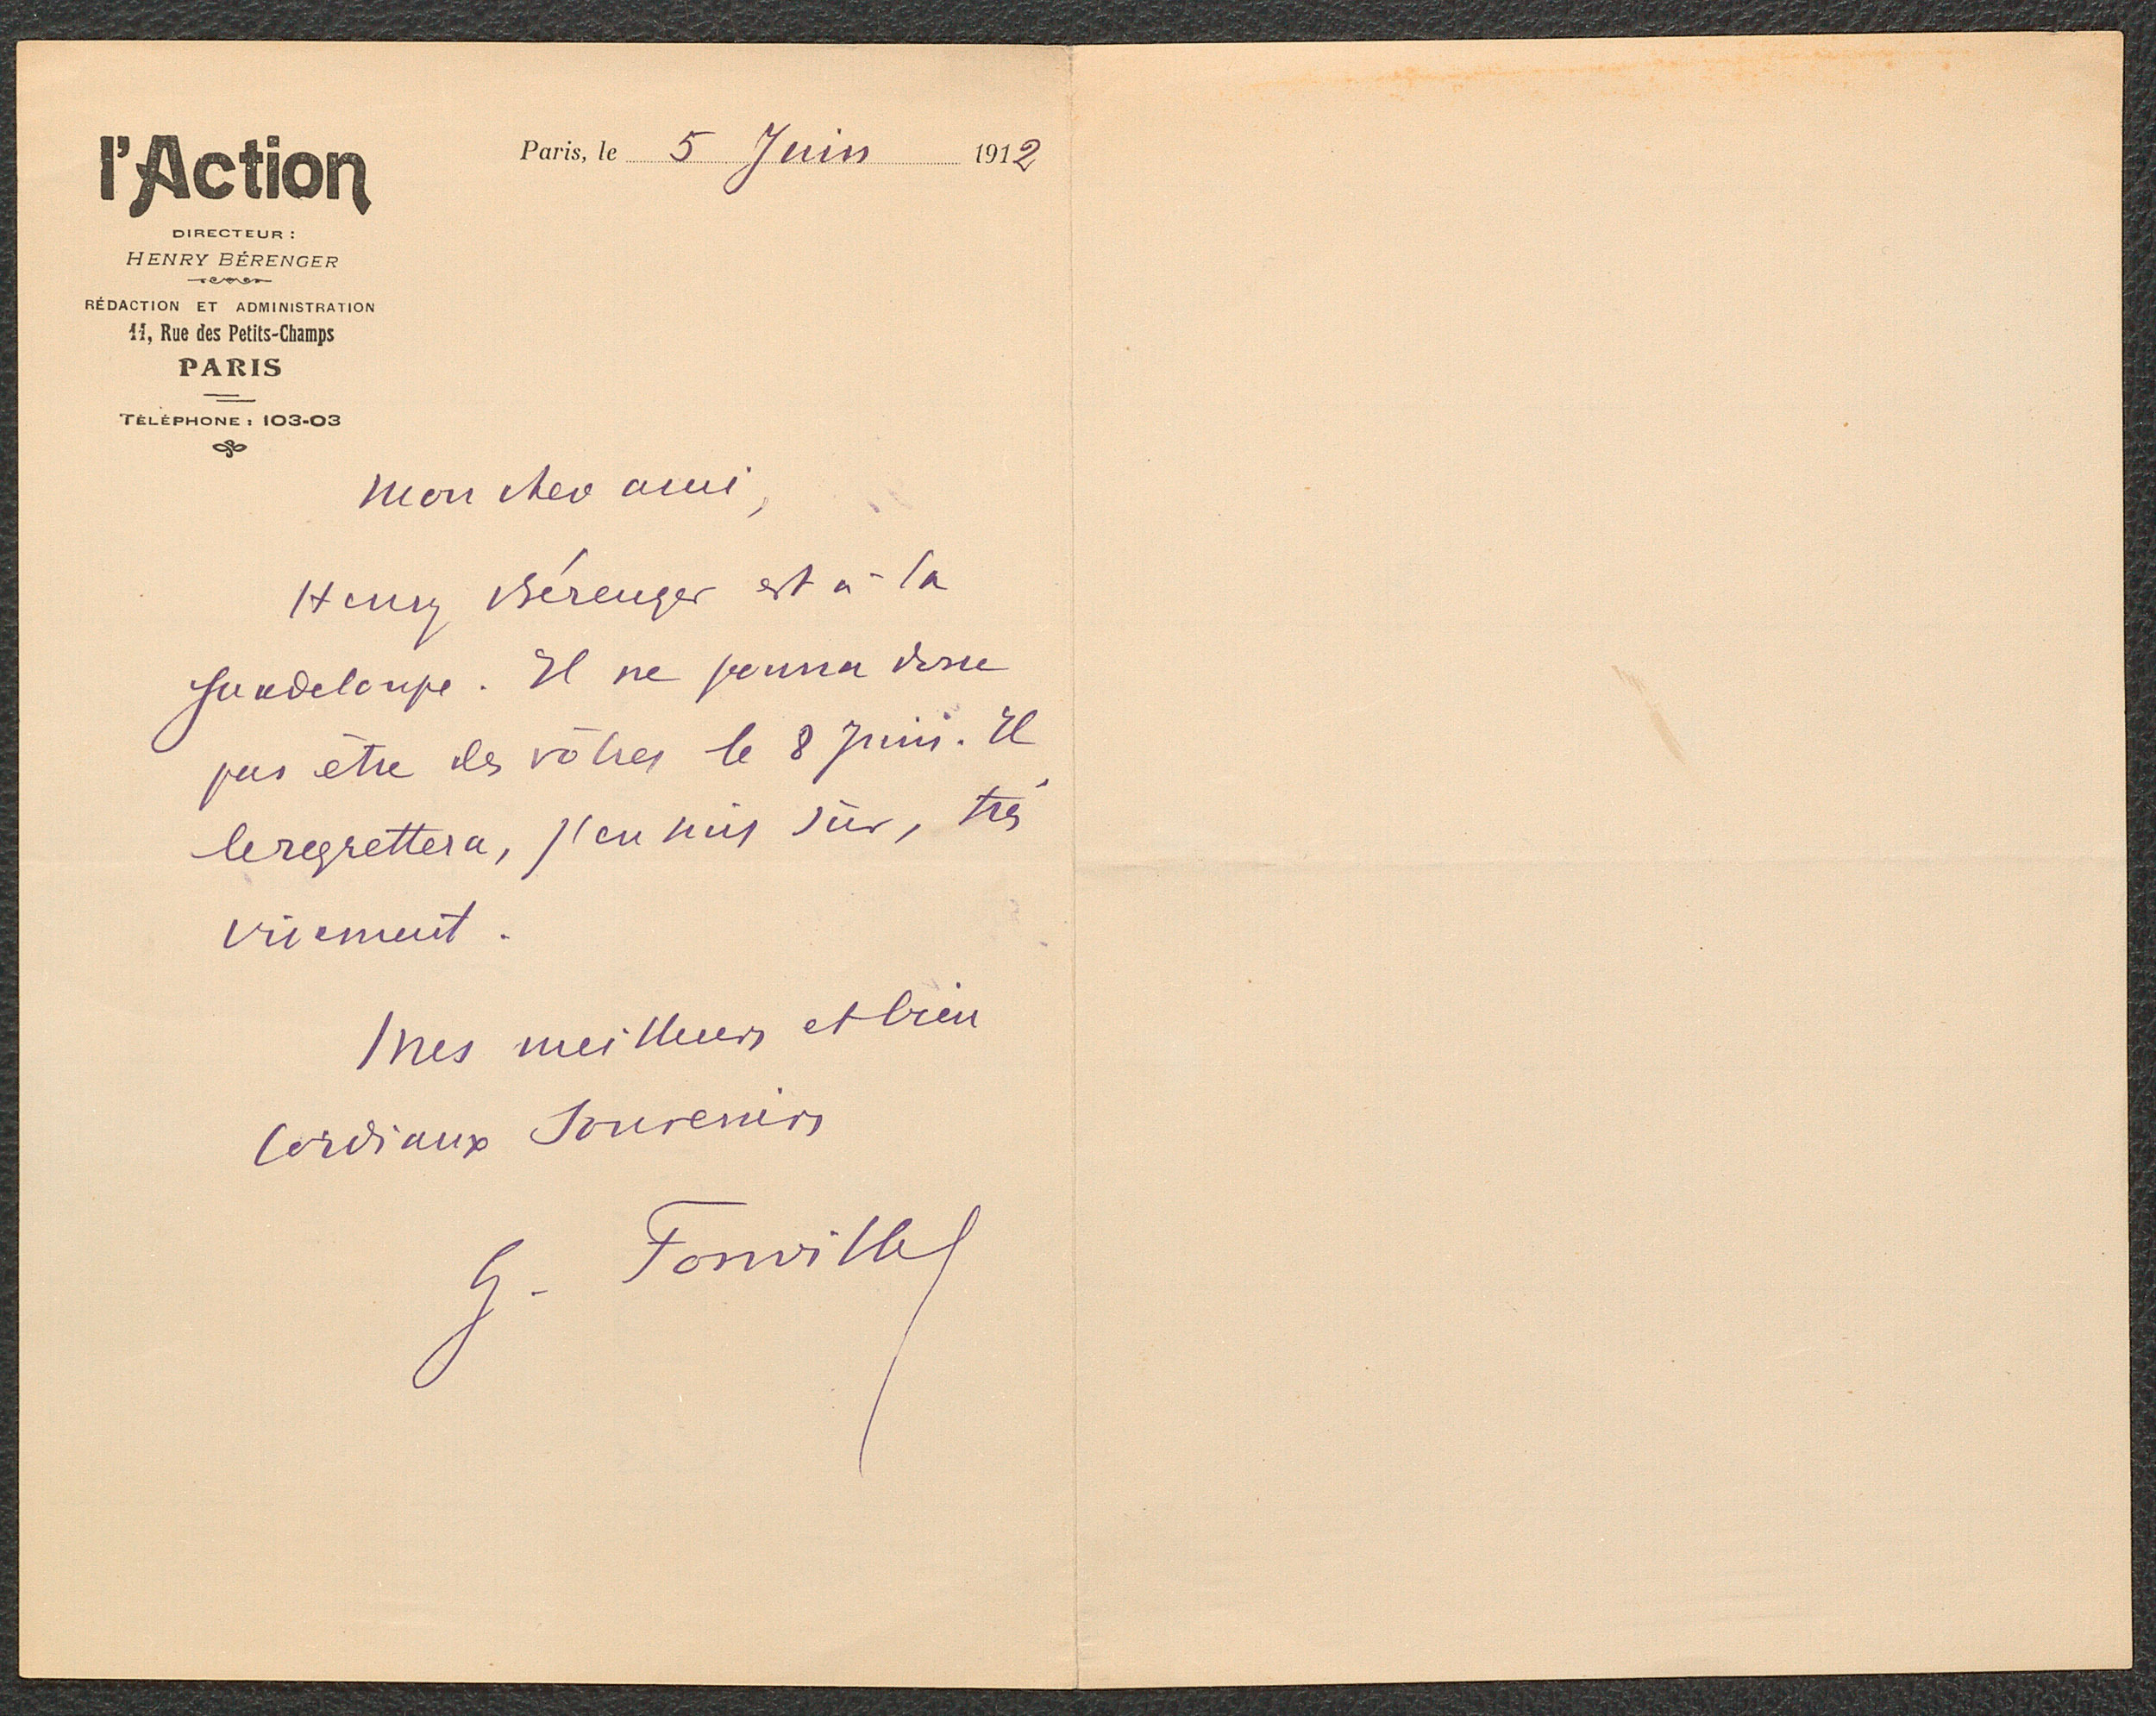 l'Action
DIRECTEUR :
HENRY BÉRENGER
RÉDACTION ET ADMINISTRATION
11, Rue des Petits-Champs
PARIS
TÉLÉPHONE : 103-03
Paris, le 5 Juin 1912
Mon cher ami,
Henry Bérenger est à la
Guadeloupe. Il ne pourra donc
pas être des vôtres le 8 Juin. Il
le regrettera, j'en suis sûr, très
vivement.
Mes meilleurs et bien
Cordiaux Souvenirs
G. Fonville